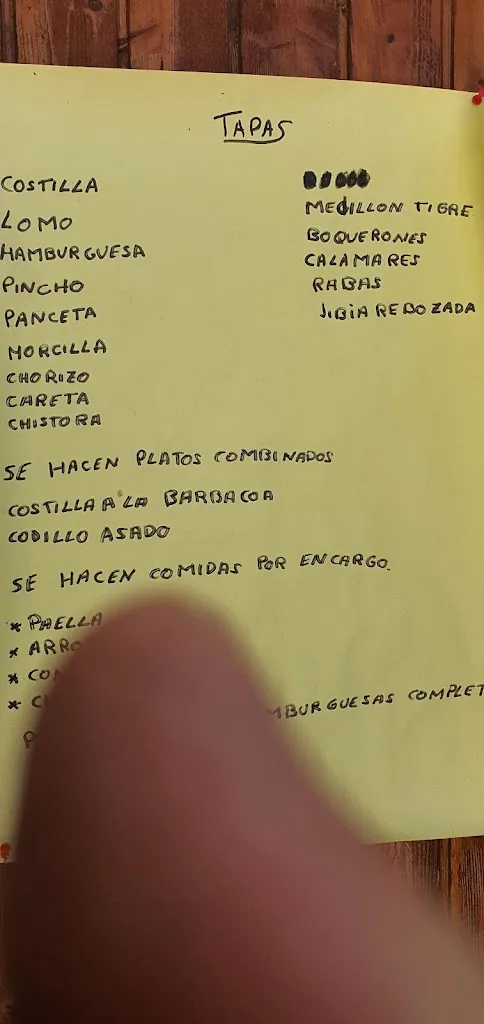 TAPAS
COSTILLA
LOMO
HAMBURGUESA
PINCHO
PANCETA
MORCILLA
CHORIZO
CARETA
CHISTORA
MEJILLON TIGRE
BOQUERONES
CALAMARES
RABAS
JIBIA REBOZADA
SE HACEN PLATOS COMBINADOS
COSTILLA A LA BARBACOA
CODILLO ASADO
SE HACEN COMIDAS POR ENCARGO.
* PAELLA
* ARRO
* CO
* C
MBURGUESAS COMPLET